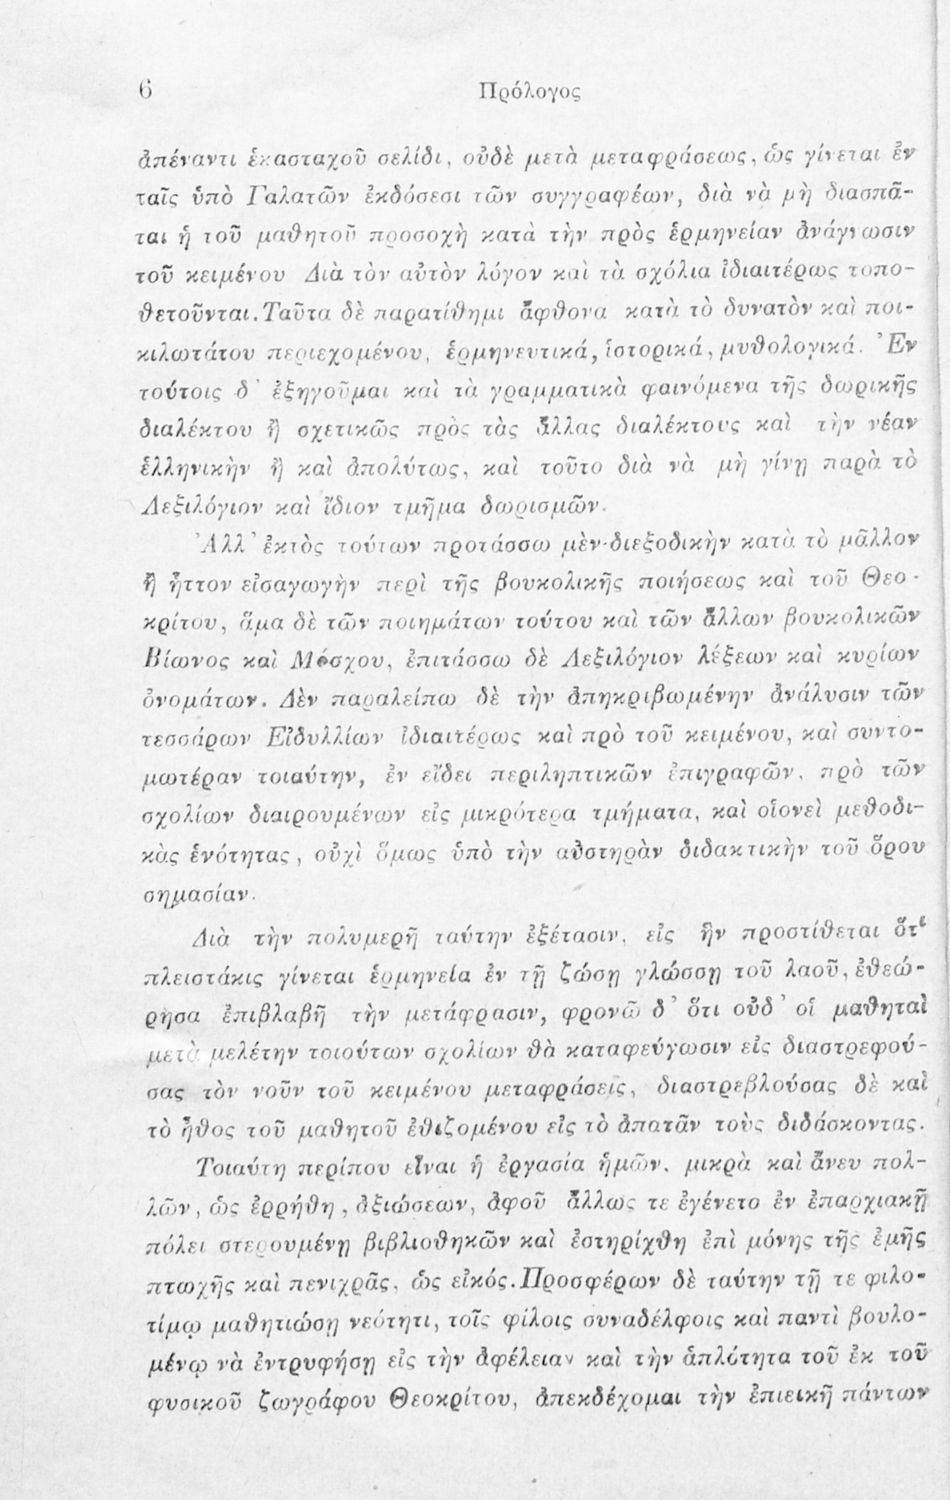 6 Πρόλογος
ἀπέναντι ἑκασταχοῦ σελίδι, οὐδὲ μετὰ μεταφράσεως, ὡς γίνεται ἐν
ταῖς ὑπὸ Γαλατῶν ἐκδόσεσι τῶν συγγραφέων, διὰ νὰ μὴ διασπᾶ-
ται ἡ τοῦ μαθητοῦ προσοχὴ κατὰ τὴν πρὸς ἑρμηνείαν ἀνάγνωσιν
τοῦ κειμένου Διὰ τὸν αὐτὸν λόγον καὶ τὰ σχόλια ἰδιαιτέρως τοπο-
θετοῦνται. Ταῦτα δὲ παρατίθημι ἄφθονα κατὰ τὸ δυνατὸν καὶ ποι-
κιλωτάτου περιεχομένου, ἑρμηνευτικά, ἱστορικά, μυθολογικά. Ἐν
τούτοις δ᾽ ἐξηγοῦμαι καὶ τὰ γραμματικὰ φαινόμενα τῆς δωρικῆς
διαλέκτου ἢ σχετικῶς πρὸς τὰς ἄλλας διαλέκτους καὶ τὴν νέαν
ἑλληνικὴν ἢ καὶ ἀπολύτως, καὶ τοῦτο διὰ νὰ μὴ γίνῃ παρὰ τὸ
Λεξιλόγιον καὶ ἴδιον τμῆμα δωρισμῶν.
Ἀλλ᾽ ἐκτὸς τούτων προτάσσω μὲν διεξοδικὴν κατὰ τὸ μᾶλλον
ἢ ἧττον εἰσαγωγὴν περὶ τῆς βουκολικῆς ποιήσεως καὶ τοῦ Θεο-
κρίτου, ἅμα δὲ τῶν ποιημάτων τούτου καὶ τῶν ἄλλων βουκολικῶν
Βίωνος καὶ Μόσχου, ἐπιτάσσω δὲ Λεξιλόγιον λέξεων καὶ κυρίων
ὀνομάτων. Δὲν παραλείπω δὲ τὴν ἀπηκριβωμένην ἀνάλυσιν τῶν
τεσσάρων Εἰδυλλίων ἰδιαιτέρως καὶ πρὸ τοῦ κειμένου, καὶ συντο-
μωτέραν τοιαύτην, ἐν εἴδει περιληπτικῶν ἐπιγραφῶν, πρὸ τῶν
σχολίων διαιρουμένων εἰς μικρότερα τμήματα, καὶ οἱονεὶ μεθοδι-
κὰς ἑνότητας, οὐχὶ ὅμως ὑπὸ τὴν αὐστηρὰν διδακτικὴν τοῦ ὅρου
σημασίαν.
Διὰ τὴν πολυμερῆ ταύτην ἐξέτασιν, εἰς ἣν προστίθεται ὅτι
πλειστάκις γίνεται ἑρμηνεία ἐν τῇ ζώσῃ γλώσσῃ τοῦ λαοῦ, ἐθεώ-
ρησα ἐπιβλαβῆ τὴν μετάφρασιν, φρονῶ δ᾽ ὅτι οὐδ᾽ οἱ μαθηταὶ
μετὰ μελέτην τοιούτων σχολίων θὰ καταφεύγωσιν εἰς διαστρεφού-
σας τὸν νοῦν τοῦ κειμένου μεταφράσεις, διαστρεβλούσας δὲ καὶ
τὸ ἦθος τοῦ μαθητοῦ ἐθιζομένου εἰς τὸ ἀπατᾶν τοὺς διδάσκοντας.
Τοιαύτη περίπου εἶναι ἡ ἐργασία ἡμῶν, μικρὰ καὶ ἄνευ πολ-
λῶν, ὡς ἐρρήθη, ἀξιώσεων, ἀφοῦ ἄλλως τε ἐγένετο ἐν ἐπαρχιακῇ
πόλει στερουμένῃ βιβλιοθηκῶν καὶ ἐστηρίχθη ἐπὶ μόνης τῆς ἐμῆς
πτωχῆς καὶ πενιχρᾶς, ὡς εἰκός. Προσφέρων δὲ ταύτην τῇ τε φιλο-
τίμῳ μαθητιώσῃ νεότητι, τοῖς φίλοις συναδέλφοις καὶ παντὶ βουλο-
μένῳ νὰ ἐντρυφήσῃ εἰς τὴν ἀφέλειαν καὶ τὴν ἁπλότητα τοῦ ἐκ τοῦ
φυσικοῦ ζωγράφου Θεοκρίτου, ἀπεκδέχομαι τὴν ἐπιεικῆ πάντων